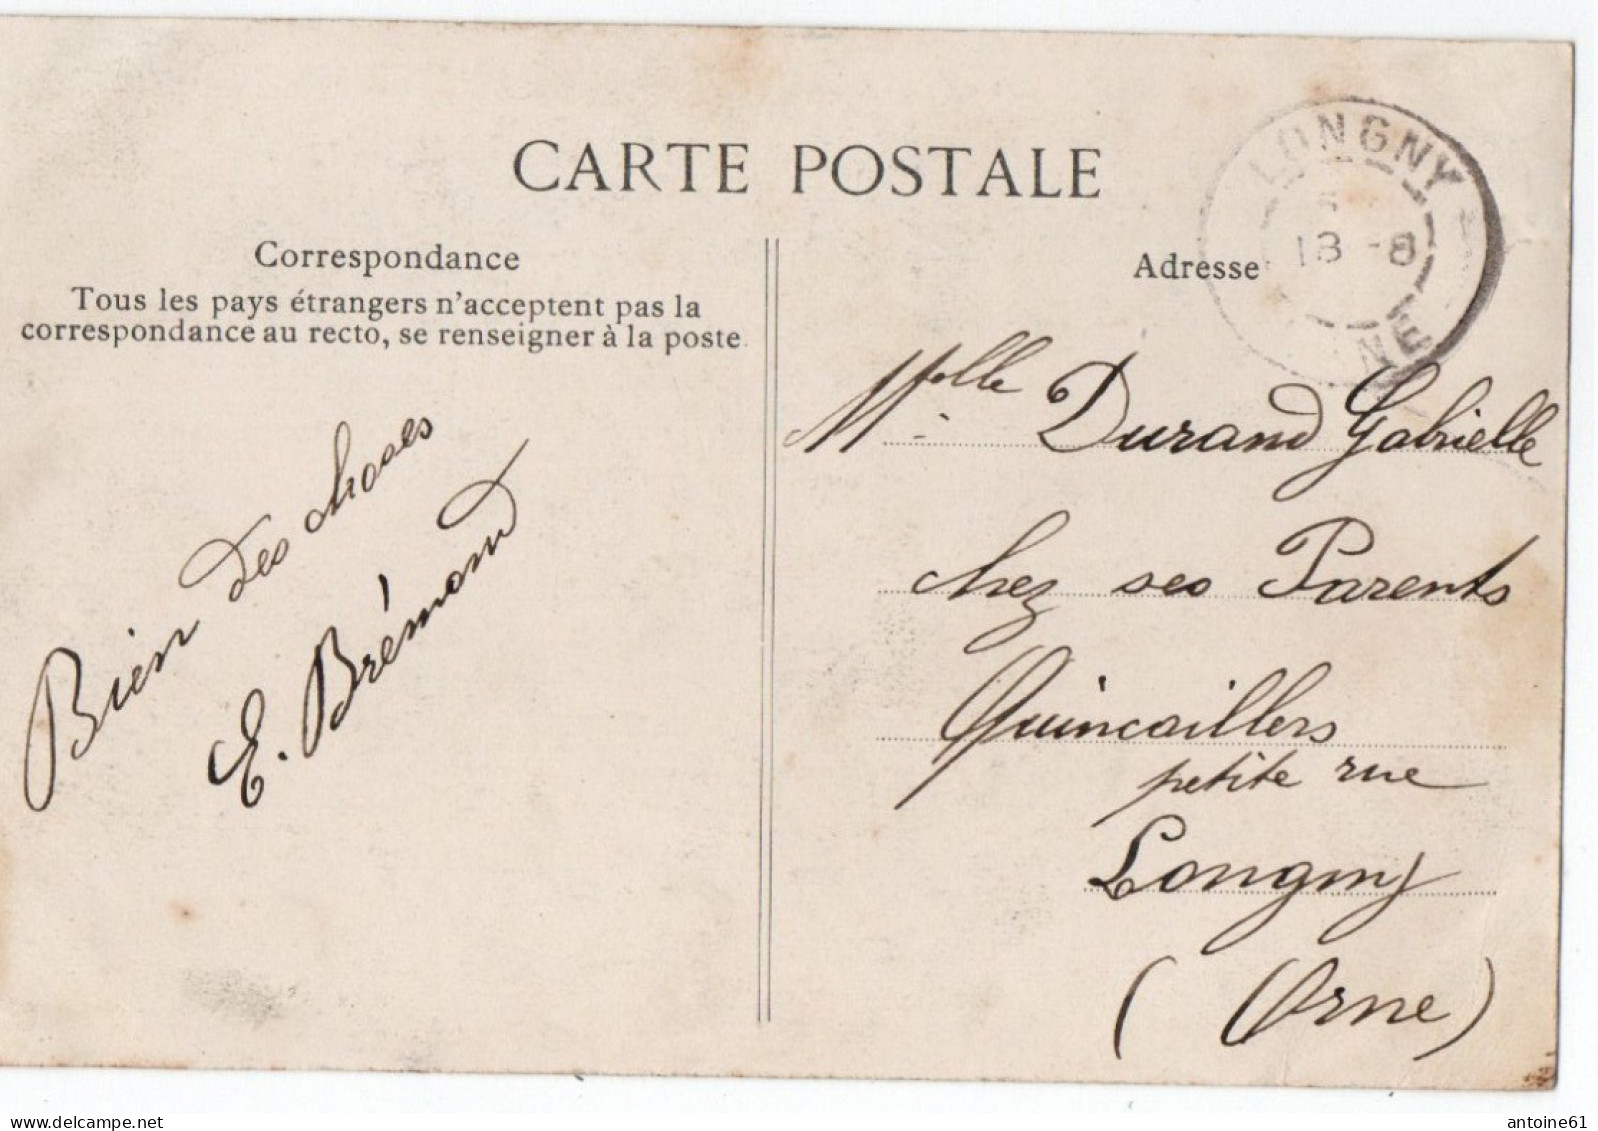 CARTE POSTALE
Correspondance
Tous les pays étrangers n'acceptent pas la
correspondance au recto, se renseigner à la poste
Bien des choses
E. Brémond
Adresse
LONGNY
18 -8
NE
Melle Durand Gabrielle
chez ses Parents
Quincaillers
petite rue
Longny
(Orne)
antoine61